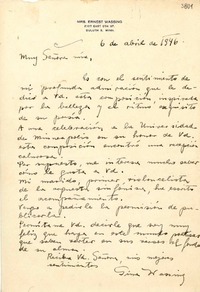 MRS. ERNEST WASSING
DULUTH 5, MINN.
6 de abril de 1946
Muy Señora mía,
Es con el sentimiento de
mi profunda admiración que le de-
dico a Vd. esta composición, inspirada
por la belleza y el ritmo exquisito
de su poesía.
A una celebración a la Universidad
de Minneapolis en su honor de Vd.
esta composición encontró una recepción
calurosa.
Por supuesto, me interesa mucho saber
como le gusta a Vd.
Mi marido, primer violoncelista
de la orquesta sinfónica, ha escrito
el acompañamiento.
Vengo a pedirle la permisión de pu-
blicarla.
Permítame Vd. decirle que soy muy
feliz que haya en este mundo poetas
que saben dotar en sus voces el fondo
de su alma.
Reciba Vd. Señora, mis mejores
sentimientos
Wassing